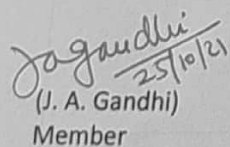 Jagandhi
25/10/21
(J. A. Gandhi)
Member